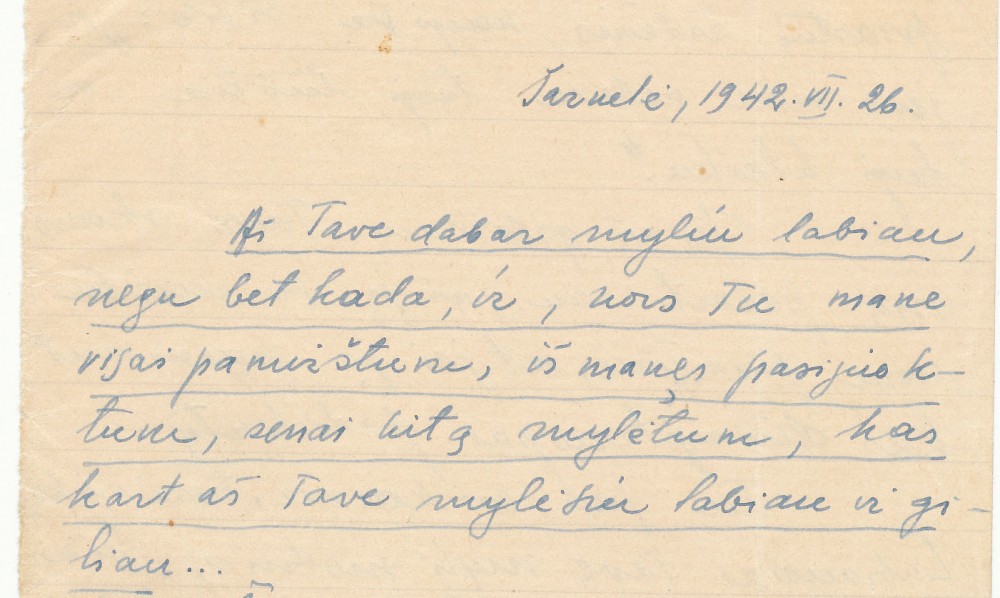 Šarnelė, 1942.VII.26.
Aš Tave dabar myliu labiau,
negu bet kada, ir, nors Tu mane
visai pamirštum, iš manęs pasijuok-
tum, senai kitą mylėtum, kas
kart aš Tave mylėsiu labiau ir gi-
liau...